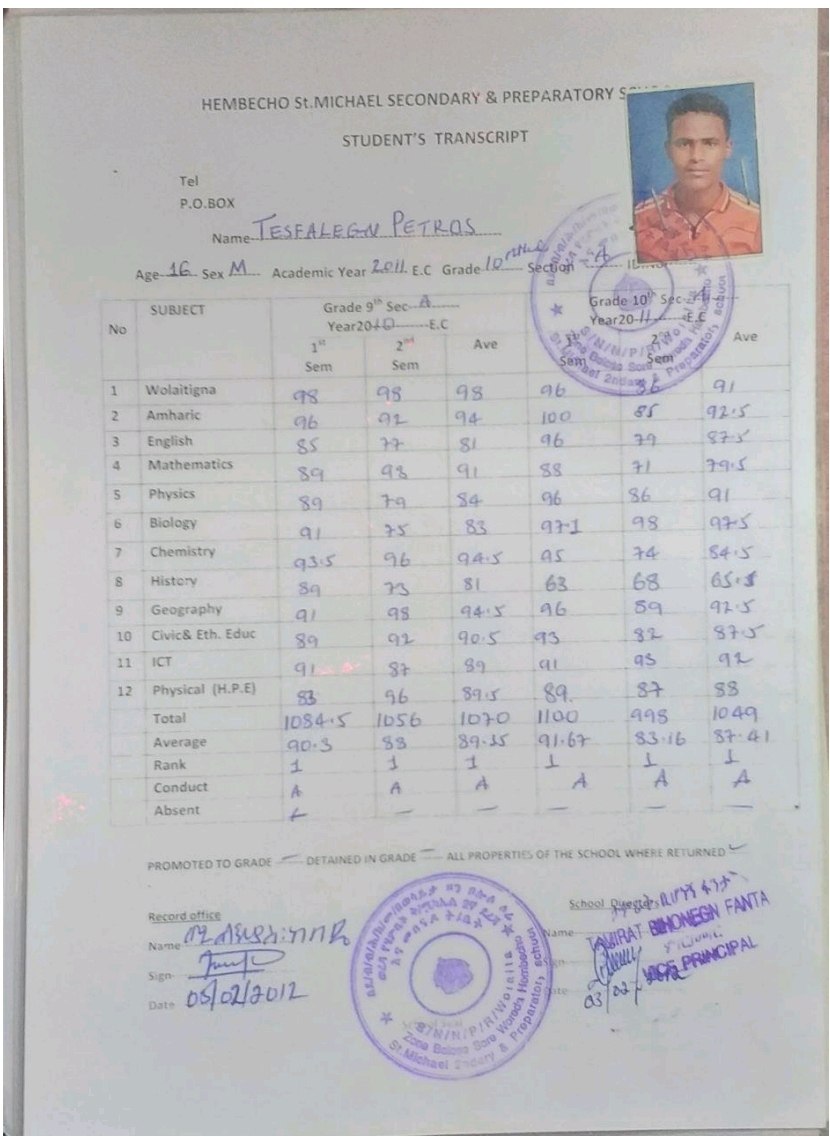 HEMBECHO St.MICHAEL SECONDARY & PREPARATORY
STUDENT'S TRANSCRIPT
Tel
P.O.BOX
Name TESFALEGN PETROS
Age 16 Sex M Academic Year 2011 E.C Grade 10 Section A
No SUBJECT Grade 9th Sec A Year 2010 E.C Grade 10th Sec A Year 2011 E.C
1st Sem 2nd Sem Ave 1st Sem 2nd Sem Ave
1 Wolaitigna 98 98 98 96 86 91
2 Amharic 96 92 94 100 85 92.5
3 English 85 77 81 96 79 87.5
4 Mathematics 89 93 91 88 71 79.5
5 Physics 89 79 84 96 86 91
6 Biology 91 75 83 97 98 97.5
7 Chemistry 93.5 96 94.5 95 74 84.5
8 History 89 73 81 63 68 65.5
9 Geography 91 98 94.5 96 89 92.5
10 Civic& Eth. Educ 89 92 90.5 93 82 87.5
11 ICT 91 87 89 91 93 92
12 Physical (H.P.E) 83 96 89.5 89 87 88
Total 1084.5 1056 1070 1100 998 1049
Average 90.3 88 89.35 91.67 83.16 87.41
Rank 1 1 1 1 1 1
Conduct A A A A A A
Absent — — — — —
PROMOTED TO GRADE — DETAINED IN GRADE — ALL PROPERTIES OF THE SCHOOL WHERE RETURNED
Record office
Name
Sign
Date 05/02/2012
School Directors
Name
TAMIRAT BIHONEGN FANTA
VICE PRINCIPAL
03/02/2012
S/N/N/P/R/Wolaita
Zone Boloso Sore Woreda Hembecho
St.Michael 2ndary & Preparatory school